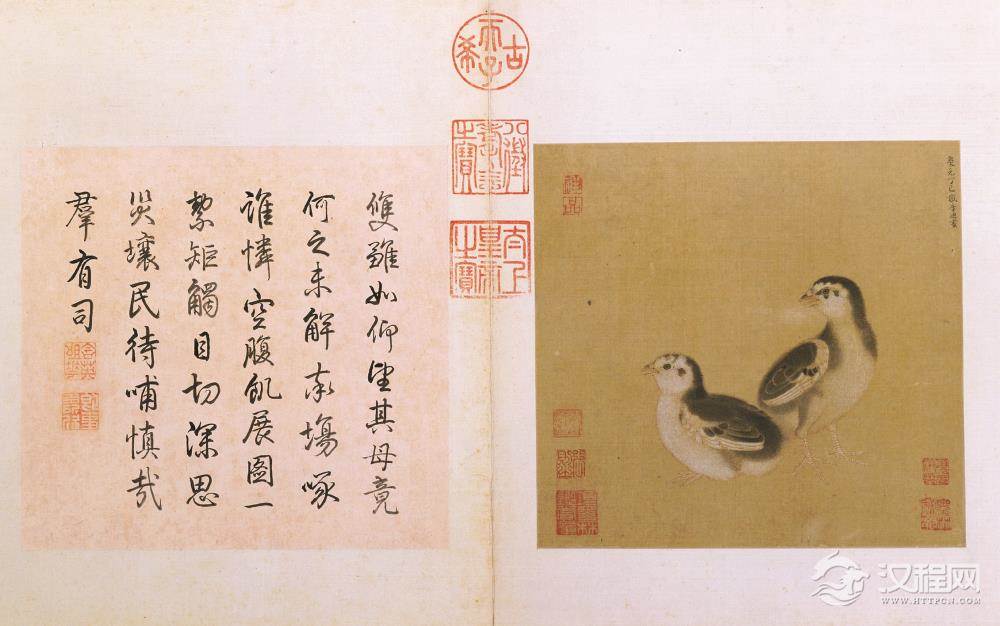 慶元丁巳歲李迪畫
古希天子
八徵耄念之寶
太上皇帝之寶
雙雛如仰望其母竟
何之未解率場啄
誰憐空腹飢展圖一
絜矩觸目切深思
災壤民待哺慎哉
羣有司
汉程网
WWW.HTTPCN.COM